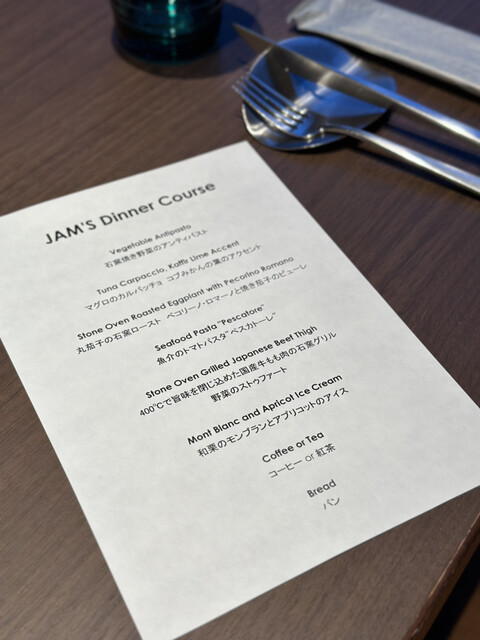 JAM'S Dinner Course
Vegetable Antipasto
石窯焼き野菜のアンティパスト
Tuna Carpaccio, Kaffir Lime Accent
マグロのカルパッチョ コブみかんの葉のアクセント
Stone Oven Roasted Eggplant with Pecorino Romano
丸茄子の石窯ロースト ペコリーノ・ロマーノと焼き茄子のピューレ
Seafood Pasta "Pescatore"
魚介のトマトパスタ"ペスカトーレ"
Stone Oven Grilled Japanese Beef Thigh
400℃で旨味を閉じ込めた国産牛もも肉の石窯グリル
野菜のストゥファート
Mont Blanc and Apricot Ice Cream
和栗のモンブランとアプリコットのアイス
Coffee or Tea
コーヒー or 紅茶
Bread
パン